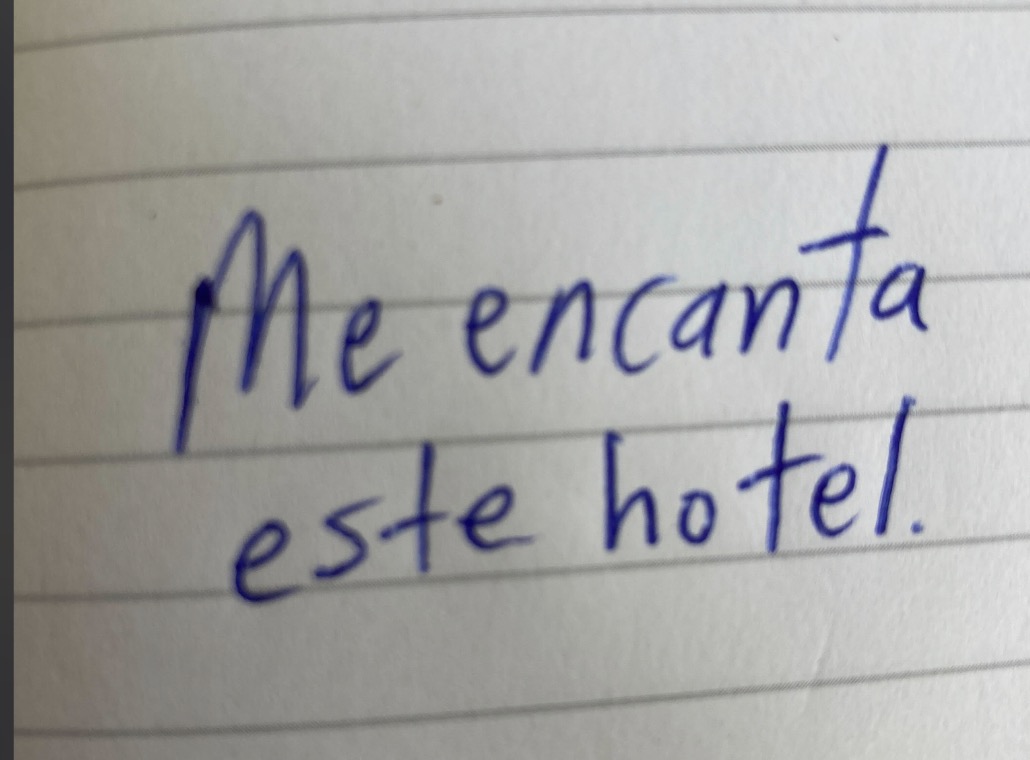 Me encanta
este hotel.